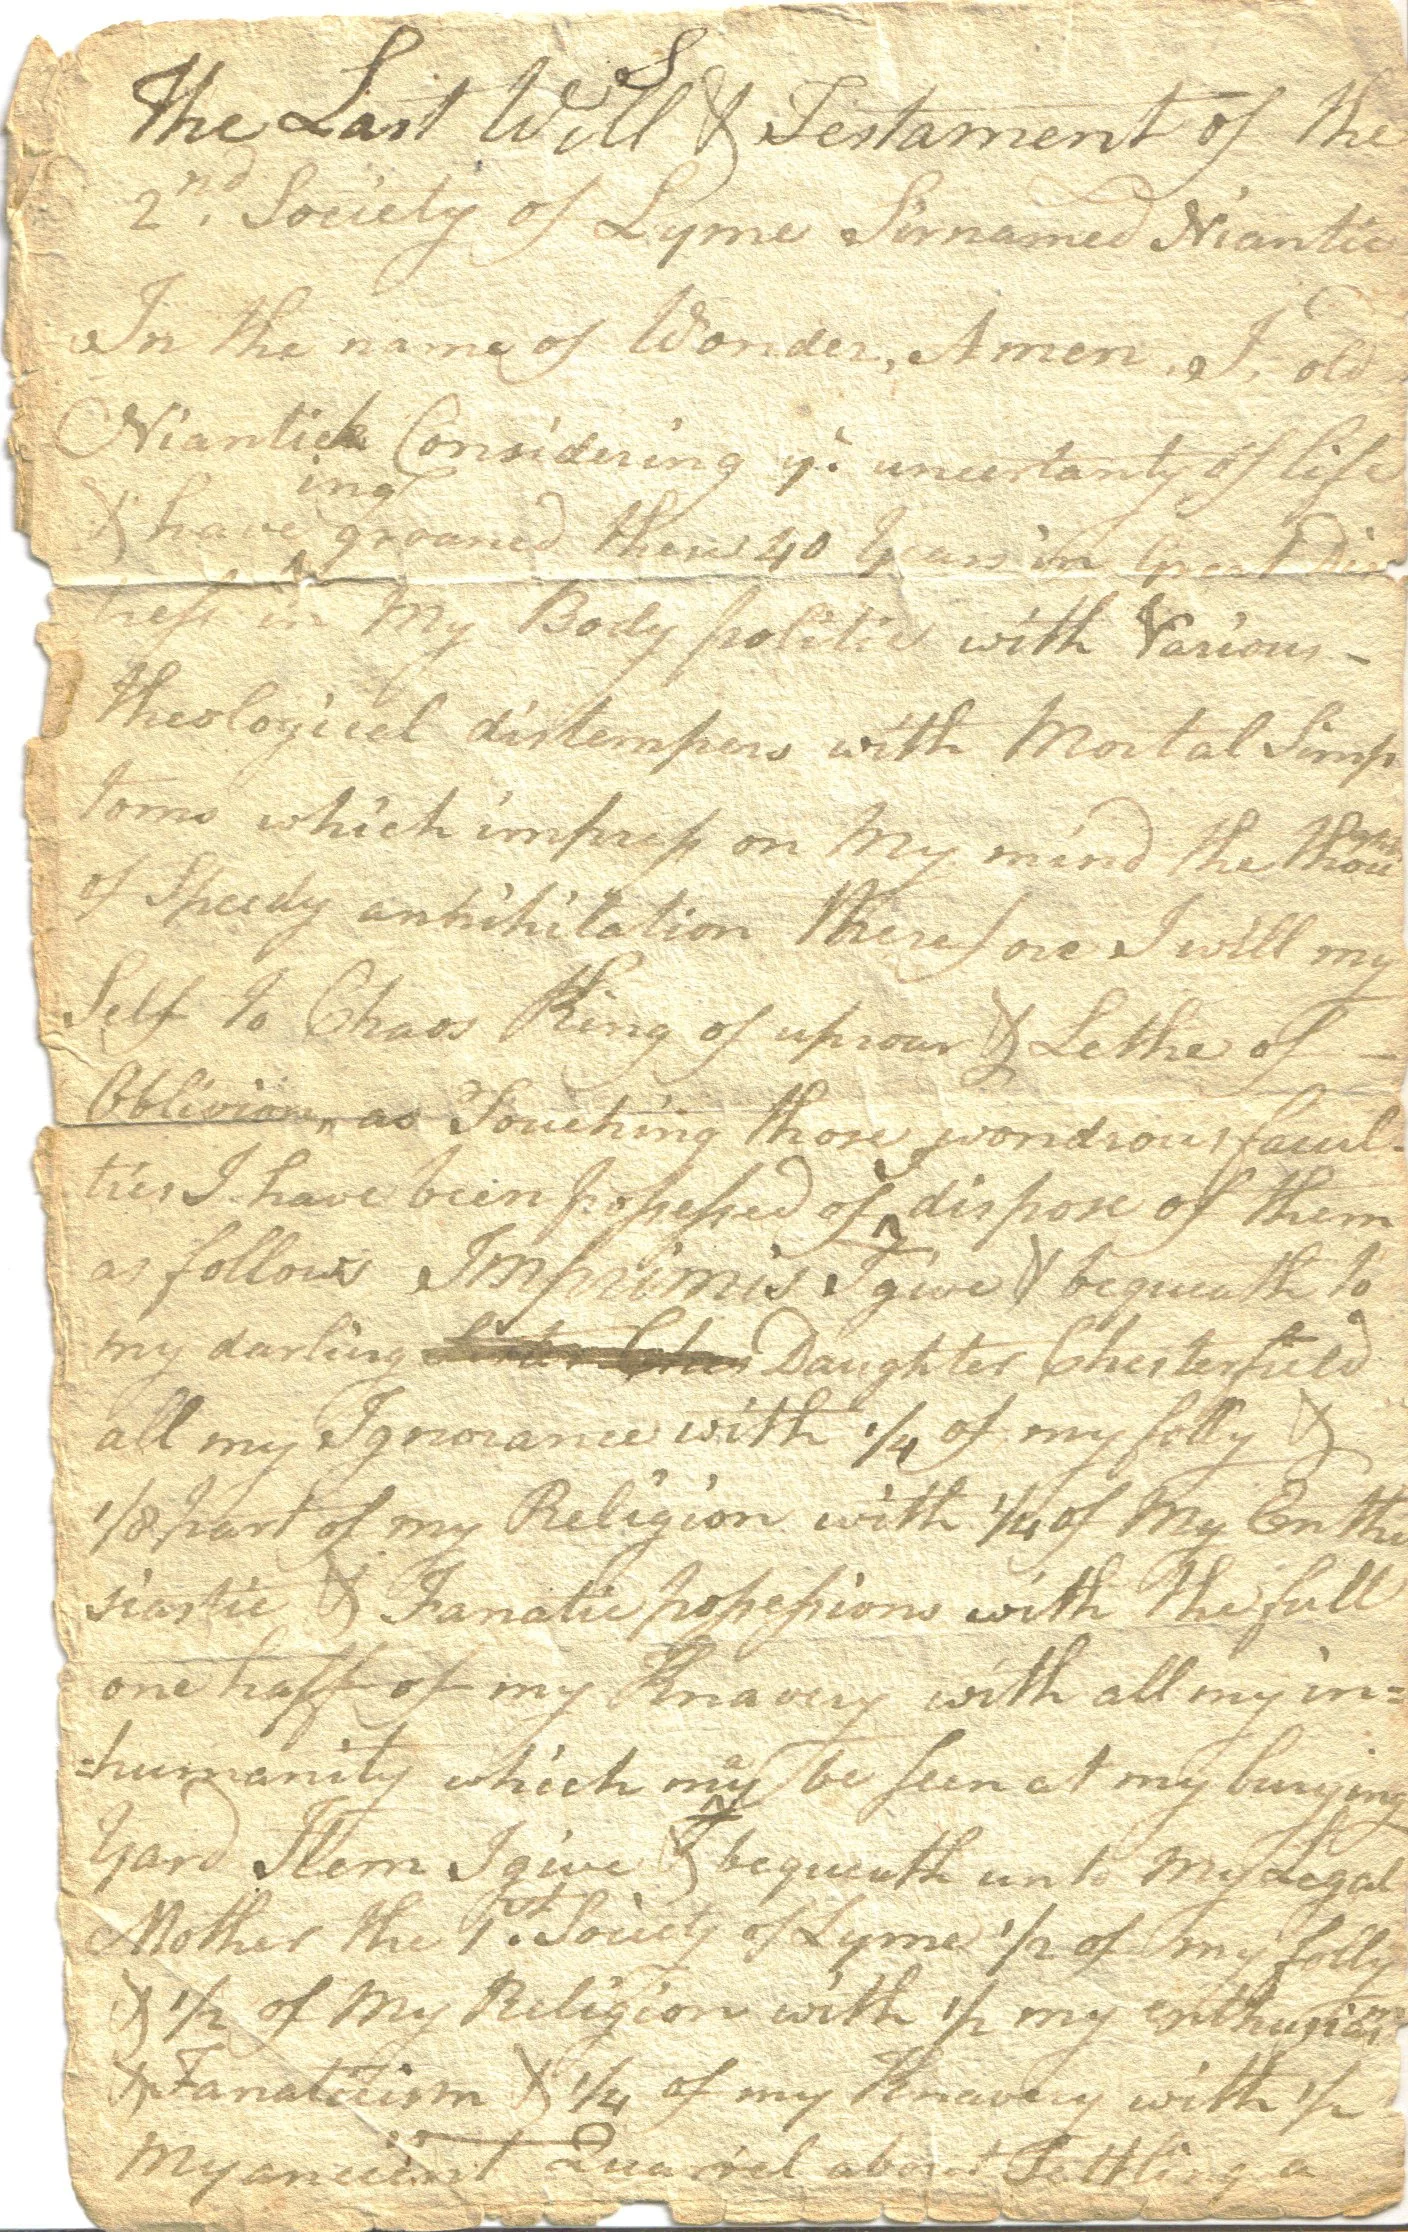 The Last Will & Testament of the
2nd. Society of Lyme Sirnamed Niantic
In the name of Wonder, Amen, I, old
Niantick Considering ye. uncertanty of life
& haveing groaned these 40 Years in Great Dis
tress in My Body politic with Various -
theologicel distempers with Mortal Simp
toms which impress on My mind the
of Speedy anhihilation therefore I will my
Self to Chaos King of uproar & Lethe of -
Oblivion, as Touching those wondrous facul-
ties I have been possessed of I dispose of them
as follows Imprimis I give & bequeath to
my darling Daughter Chesterfield
all my Ignorance with 1/4 of my folly &
1/8 part of my Religion with 1/4 of My Enthu
siastic & Fanatic possessions with the full
one haff of my Knavery with all my in=
=humanity which may be seen at my burying
Yard Item I give & bequeath unto My Legal
Mother the 1st. Society of Lyme 1/2 of my folly
& 1/2 of My Religion with 1/2 my enthusiasm
& Fanaticism & 1/4 of my Knavery with 1/2
My ancient Quarrel about Settling a